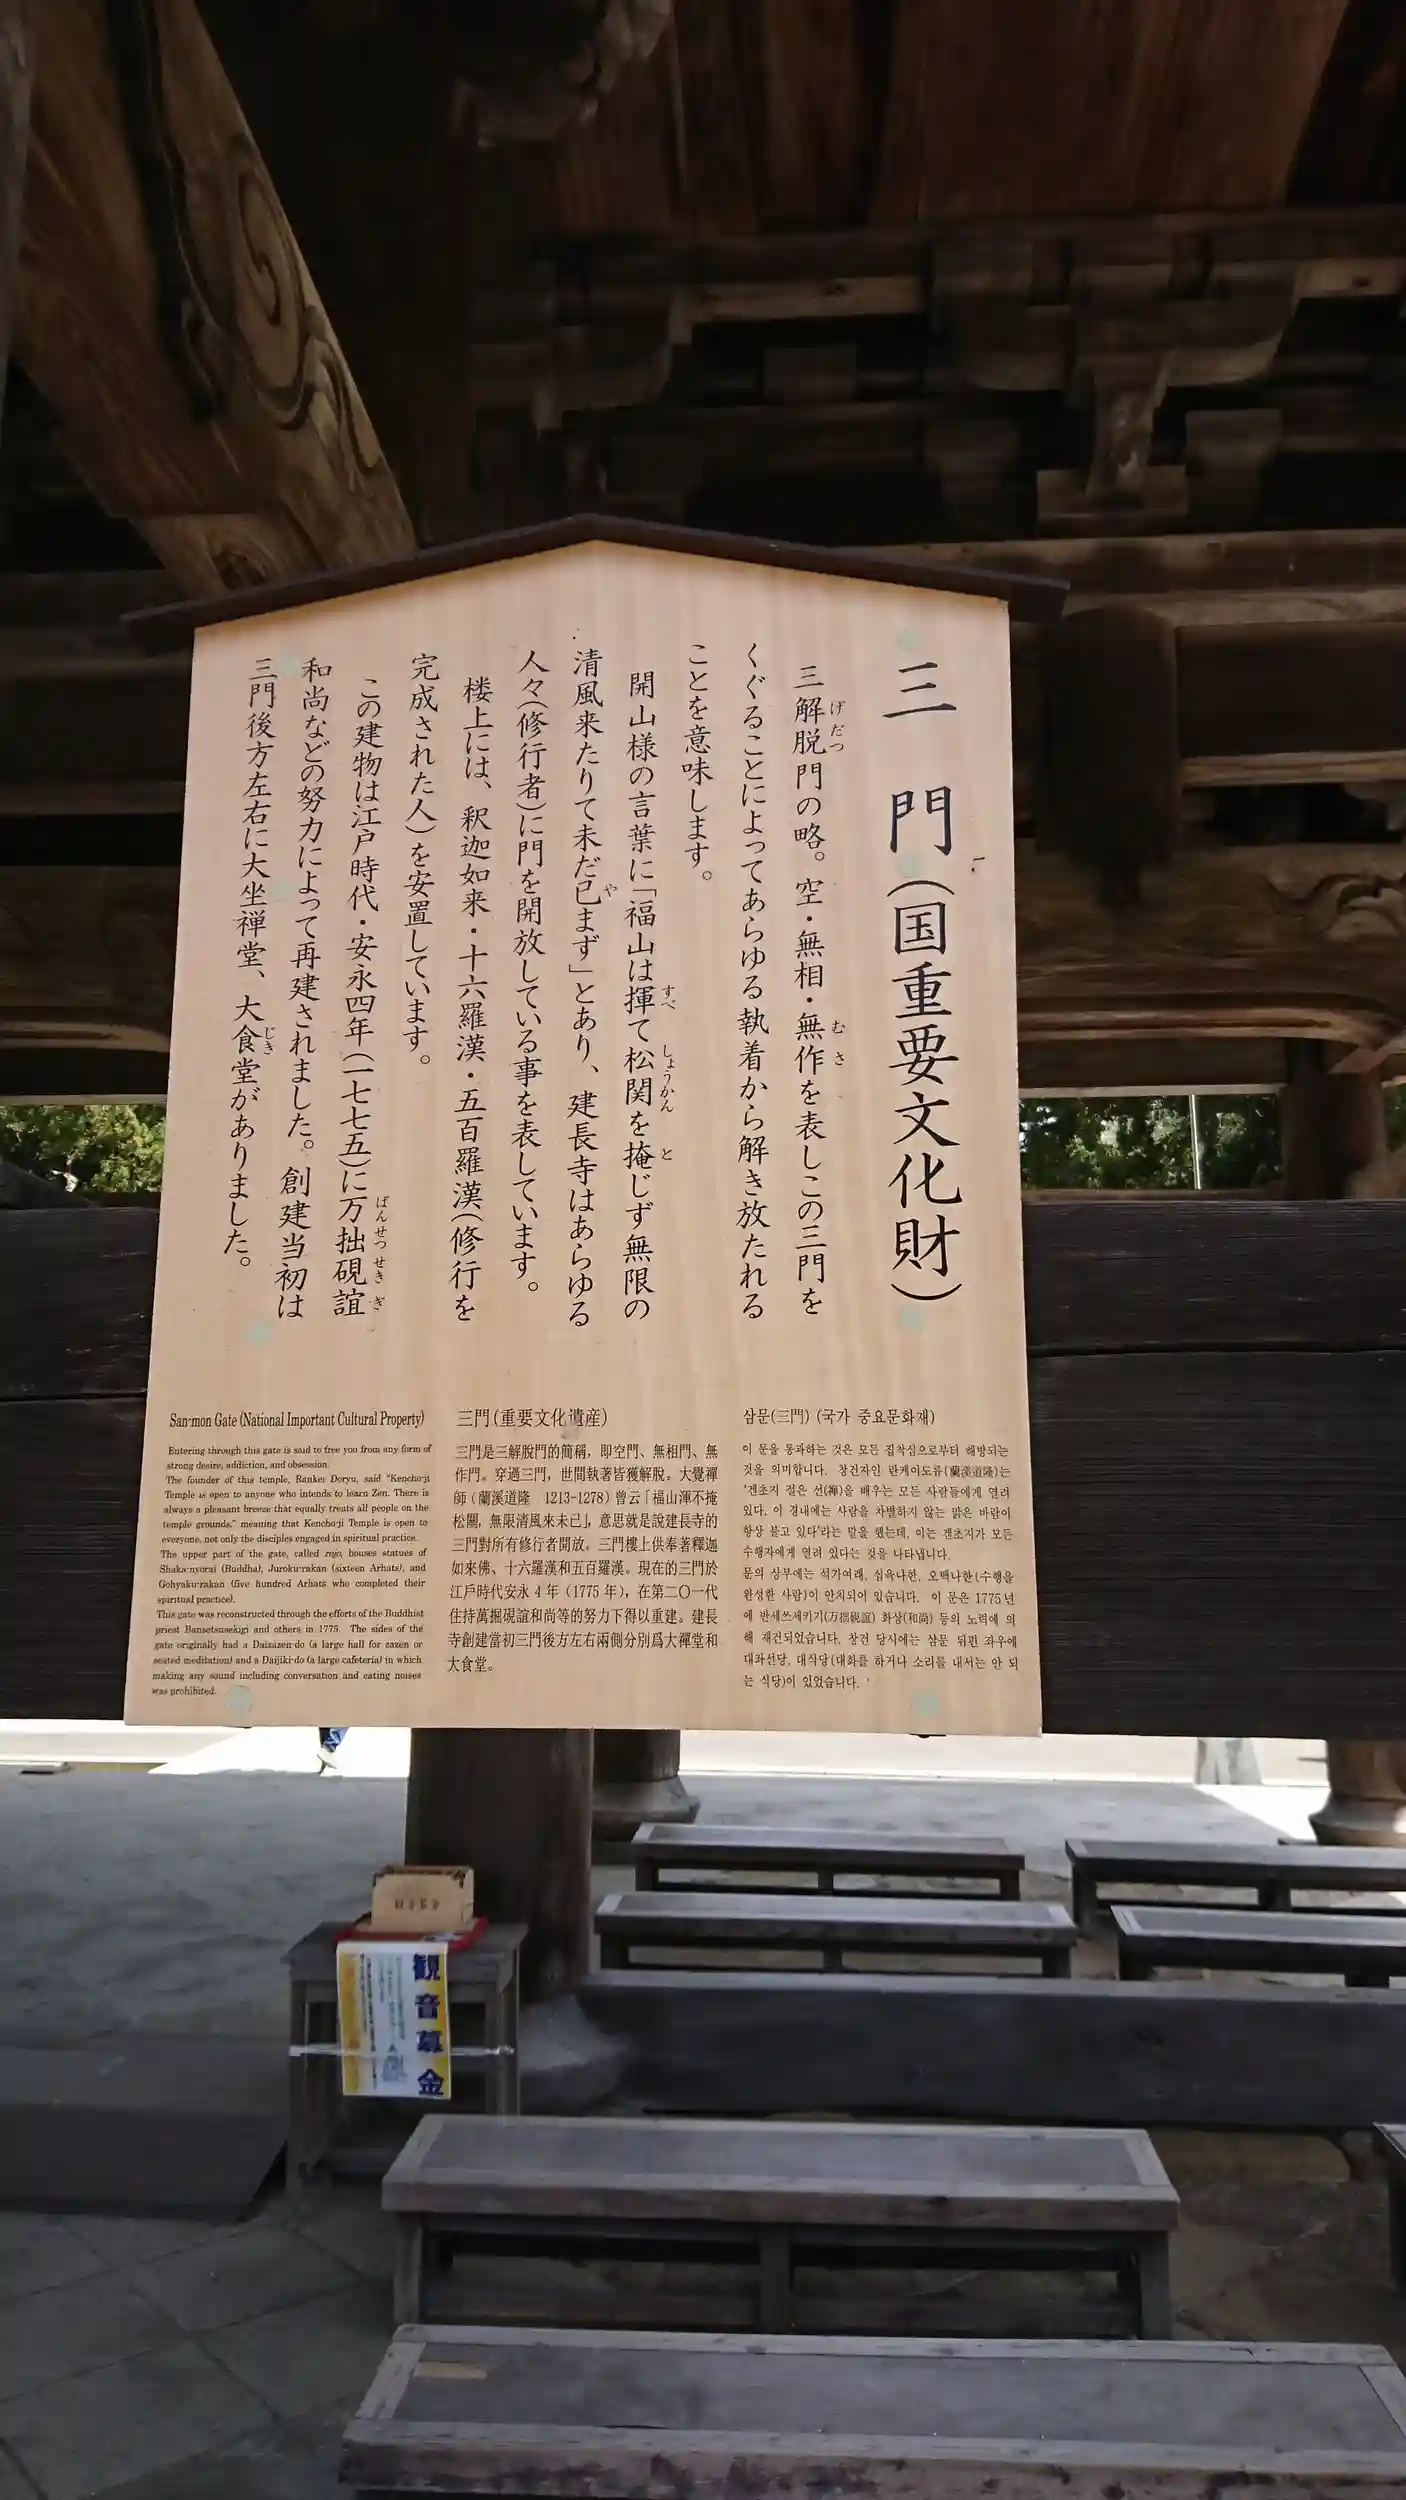 三 門（国重要文化財）
三解脱門の略。空・無相・無作を表しこの三門を
くぐることによってあらゆる執着から解き放たれる
ことを意味します。
開山様の言葉に「福山は揮て松関を掩じず無限の
清風来たりて未だ已まず」とあり、建長寺はあらゆる
人々（修行者）に門を開放している事を表しています。
楼上には、釈迦如来・十六羅漢・五百羅漢（修行を
完成された人）を安置しています。
この建物は江戸時代・安永四年（一七七五）に万拙硯誼
和尚などの努力によって再建されました。創建当初は
三門後方左右に大坐禅堂、大食堂がありました。
げだつ
むさ
すべ
しょうかん
と
や
ばんせつせきぎ
じき
San-mon Gate (National Important Cultural Property)
Entering through this gate is said to free you from any form of
strong desire, addiction, and obsession.
The founder of this temple, Rankei Doryu, said "Kencho-ji
Temple is open to anyone who intends to learn Zen. There is
always a pleasant breeze that equally treats all people on the
temple grounds," meaning that Kencho-ji Temple is open to
everyone, not only the disciples engaged in spiritual practice.
The upper part of the gate, called rojo, houses statues of
Shaka-nyorai (Buddha), Juroku-rakan (sixteen Arhats), and
Gohyaku-rakan (five hundred Arhats who completed their
spiritual practice).
This gate was reconstructed through the efforts of the Buddhist
priest Bansetsusekigi and others in 1775. The sides of the
gate originally had a Daizazen-do (a large hall for zazen or
seated meditation) and a Daijiki-do (a large cafeteria) in which
making any sound including conversation and eating noises
was prohibited.
三門（重要文化遺産）
三門是三解脫門的簡稱，即空門、無相門、無
作門。穿過三門，世間執著皆獲解脫。大覺禪
師（蘭溪道隆 1213-1278）曾云「福山渾不掩
松關，無限清風來未已」，意思就是說建長寺的
三門對所有修行者開放。三門樓上供奉著釋迦
如來佛、十六羅漢和五百羅漢。現在的三門於
江戶時代安永 4 年（1775 年），在第二〇一代
住持萬拙硯誼和尚等的努力下得以重建。建長
寺創建當初三門後方左右兩側分別爲大禪堂和
大食堂。
삼문(三門) (국가 중요문화재)
이 문을 통과하는 것은 모든 집착심으로부터 해방되는
것을 의미합니다. 창건자인 란케이도류(蘭溪道隆)는
'겐초지 절은 선(禅)을 배우는 모든 사람들에게 열려
있다. 이 경내에는 사람을 차별하지 않는 맑은 바람이
항상 불고 있다'라는 말을 했는데, 이는 겐초지가 모든
수행자에게 열려 있다는 것을 나타냅니다.
문의 상부에는 석가여래, 십육나한, 오백나한(수행을
완성한 사람)이 안치되어 있습니다. 이 문은 1775년
에 반세쓰세키기(万拙硯誼) 화상(和尚) 등의 노력에 의
해 재건되었습니다. 창건 당시에는 삼문 뒤편 좌우에
대좌선당, 대식당(대화를 하거나 소리를 내서는 안 되
는 식당)이 있었습니다.
観音募金